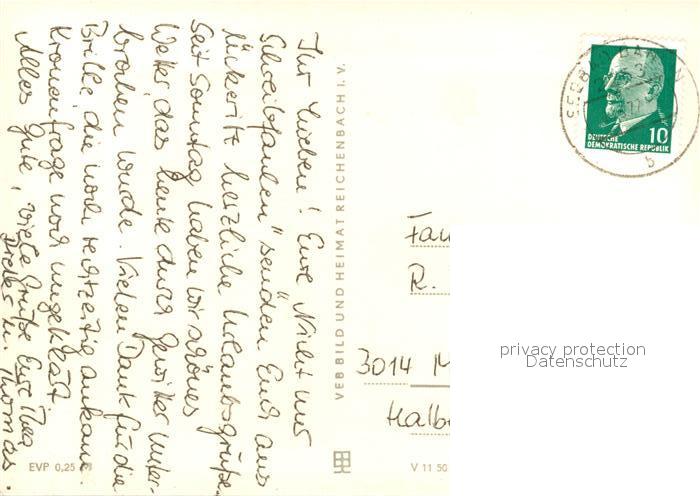 Ihr Lieben! Eure "Nicht nur
Schreibfaulen" senden Euch aus
Ückeritz herzliche Urlaubsgrüße.
Seit Sonntag haben wir schönes
Wetter, das heute durch Gewitter unter-
brochen wurde. Vielen Dank für die
Brille, die noch rechtzeitig ankam.
Kronenfrage noch ungeklärt.
Alles Gute, viele Grüße Eure Thea
u. Thomas.
VEB BILD UND HEIMAT REICHENBACH I. V.
EVP 0,25 M
V 11 50
DEUTSCHE
DEMOKRATISCHE REPUBLIK
10
SEEBAD
b
Fam
R.
3014 M
Halb
privacy protection
Datenschutz